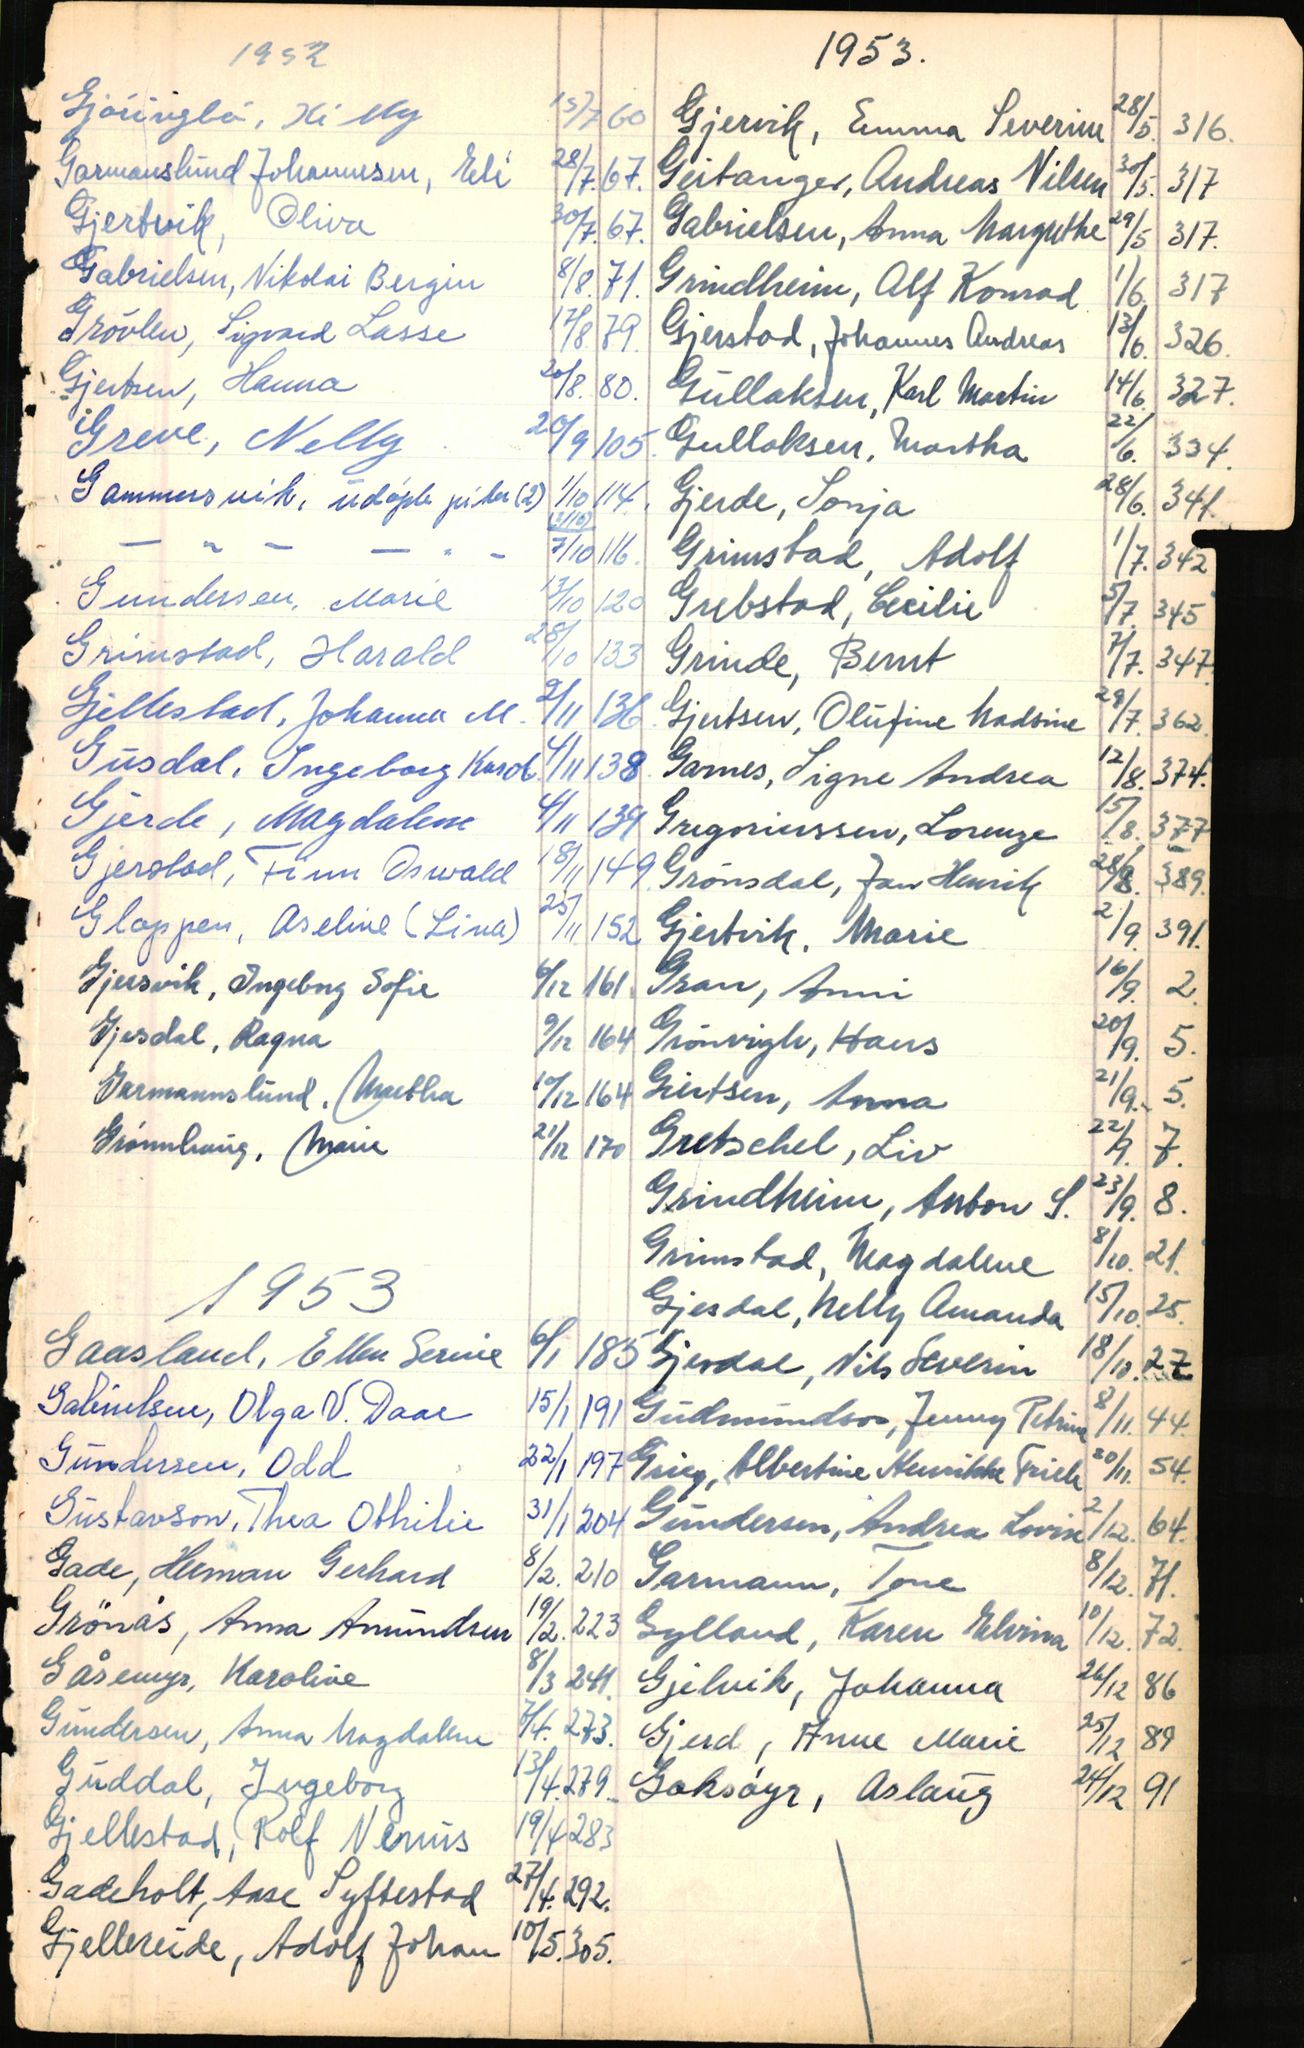 1952
Gjöringbö, Hilly 15/7 60
Garmanslund Johannesen, Eli 28/7. 67.
Gjertvik, Oliva 30/7. 67.
Gabrielsen, Nikolai Bergin 8/8. 71.
Grövlen, Sigvard Lasse 17/8 79.
Gjertsen, Hanna 20/8. 80.
Greve, Nelly 20/9 105.
Gammersvik, udöpte (2) 1/10 114.
— " — — " — 7/10 116.
Gundersen, Marie 13/10 120
Grimstad, Harald 28/10 133
Gjellestad, Johanna M. 2/11 136.
Gusdal, Ingeborg Karol. 4/11 138.
Gjerde, Magdalene 4/11 139
Gjerstad, Finn Oswald 18/11 149.
Gloppen, Aseline (Lina) 25/11 152
Gjersvik, Ingeborg Sofie 6/12 161.
Gjesdal, Ragna 9/12 164
Garmannslund, Martha 10/12 164
Grönnhaug, Marie 21/12 170
1953
Gaasland, Ellen Serine 6/1 185
Gabrielsen, Olga V. Daae 15/1 191
Gundersen, Odd 22/1 197
Gustavson, Thea Othilie 31/1 204
Gade, Herman Gerhard 8/2. 210
Grönås, Anna Amundsen 19/2. 223
Gåsemyr, Karoline 8/3 241.
Gundersen, Anna Magdalene 7/4. 273.
Guddal, Ingeborg 13/4. 279.
Gjellestad, Rolf Nenus 19/4 283
Gadeholt, Aase Syftestad 27/4. 292.
Gjellereide, Adolf Johan 10/5. 305.
1953.
Gjervik, Emma Severine 28/5. 316.
Geitanger, Andreas Nilsen 30/5. 317
Gabrielsen, Anna Margrethe 29/5 317.
Grindheim, Alf Konrad 1/6. 317
Gjerstad, Johannes Andreas 13/6. 326.
Gullaksen, Karl Martin 14/6. 327.
Gullaksen, Martha 22/6. 334.
Gjerde, Sonja 28/6. 341.
Grimstad, Adolf 1/7. 342
Grebstad, Cecilie 5/7. 345
Grinde, Bernt 7/7. 347.
Gjertsen, Olufine Madsine 29/7. 362.
Garnes, Signe Andrea 12/8. 374.
Gregoriussen, Lorenze 15/8. 377
Grönsdal, Jan Henrik 28/8. 389.
Gjertvik, Marie 2/9. 391.
Gran, Anni 16/9. 2.
Grönvigh, Hans 20/9. 5.
Giertsen, Anna 21/9. 5.
Gretschel, Liv 22/9. 7.
Grindheim, Anton S. 23/9. 8.
Grimstad, Magdalene 8/10. 21.
Gjesdal, Nelly Amanda 15/10. 25.
Gjesdal, Nils Severin 18/10. 27
Gudmundson, Jenny Petrine 8/11. 44.
Grieg, Albertine Henrikke Friele 20/11. 54.
Gundersen, Andrea Lovise 2/12. 64.
Garmann, Tone 8/12. 71.
Gylland, Karen Elvina 10/12. 72.
Gjelvik, Johanna 26/12 86
Gjerd, Anne Marie 25/12 89
Goksöyr, Aslaug 24/12 91